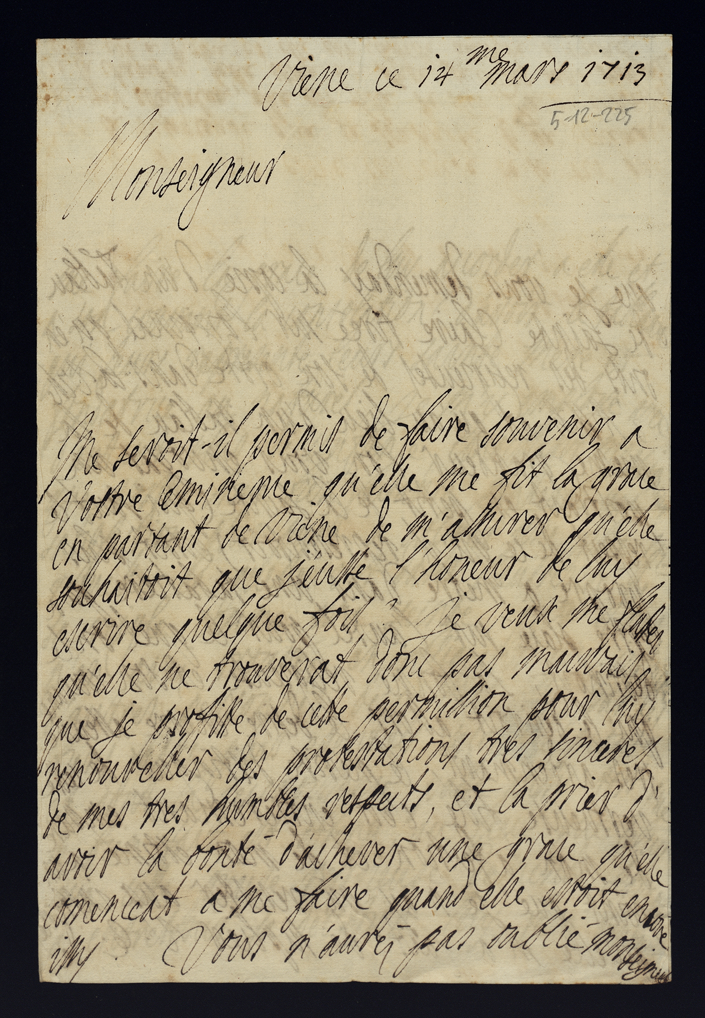 Viene ce 14me mars 1713
5-12-225
Monseigneur
Me seroit-il permis de faire souvenir a
Vostre Eminence qu'elle me fit la grace
en partant de Viene de m'assurer qu'elle
souhaitoit que j'eusse l'honeur de luy
escrire quelque fois? je veux me flater
qu'elle ne trouverat donc pas mauvais
que je profite de cette permission pour luy
renouveller des protestations tres sinceres
de mes tres humbles respects, et la prier d'
avoir la bonté d'achever une grace qu'elle
comencat a me faire quand elle estoit encore
issy Vous n'aurez pas oublié monseigneur